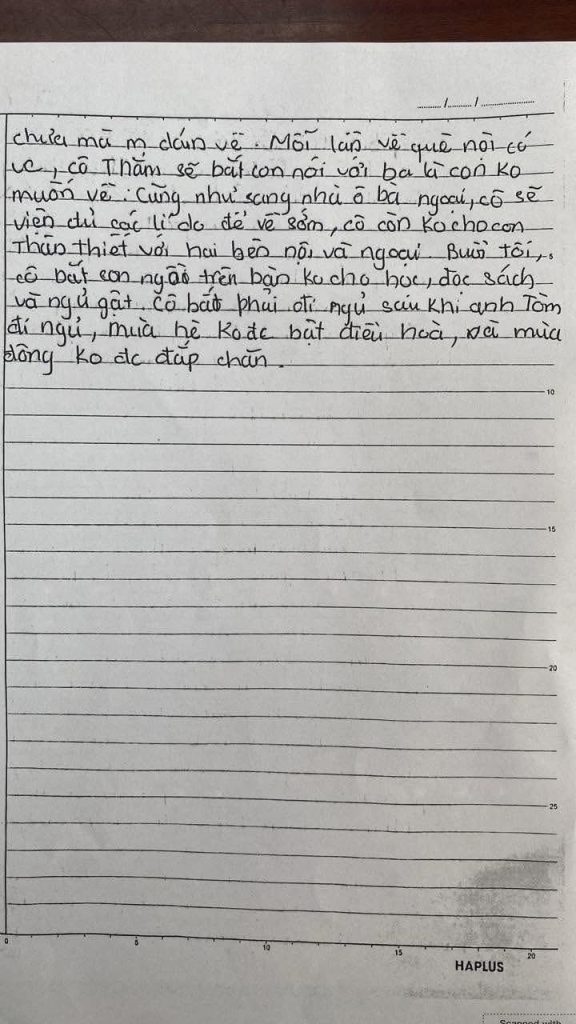 ....../....../............
chưa mà m dán về. Mỗi lần về quê nội có
vc, cô Thắm sẽ bắt con nói với ba là con ko
muốn về. Cũng như sang nhà ô bà ngoại, cô sẽ
viện đủ các lí do để về sớm, cô còn ko cho con
Thân thiết với hai bên nội và ngoại. Buổi tối,
cô bắt con ngồi trên bàn ko cho học, đọc sách
và ngủ gật. Cô bắt phải đi ngủ sau khi anh Tôm
đi ngủ, mùa hè ko đc bật điều hoà, và mùa
đông ko đc đắp chăn.
10
15
20
25
0 5 10 15 20
HAPLUS
Scanned with